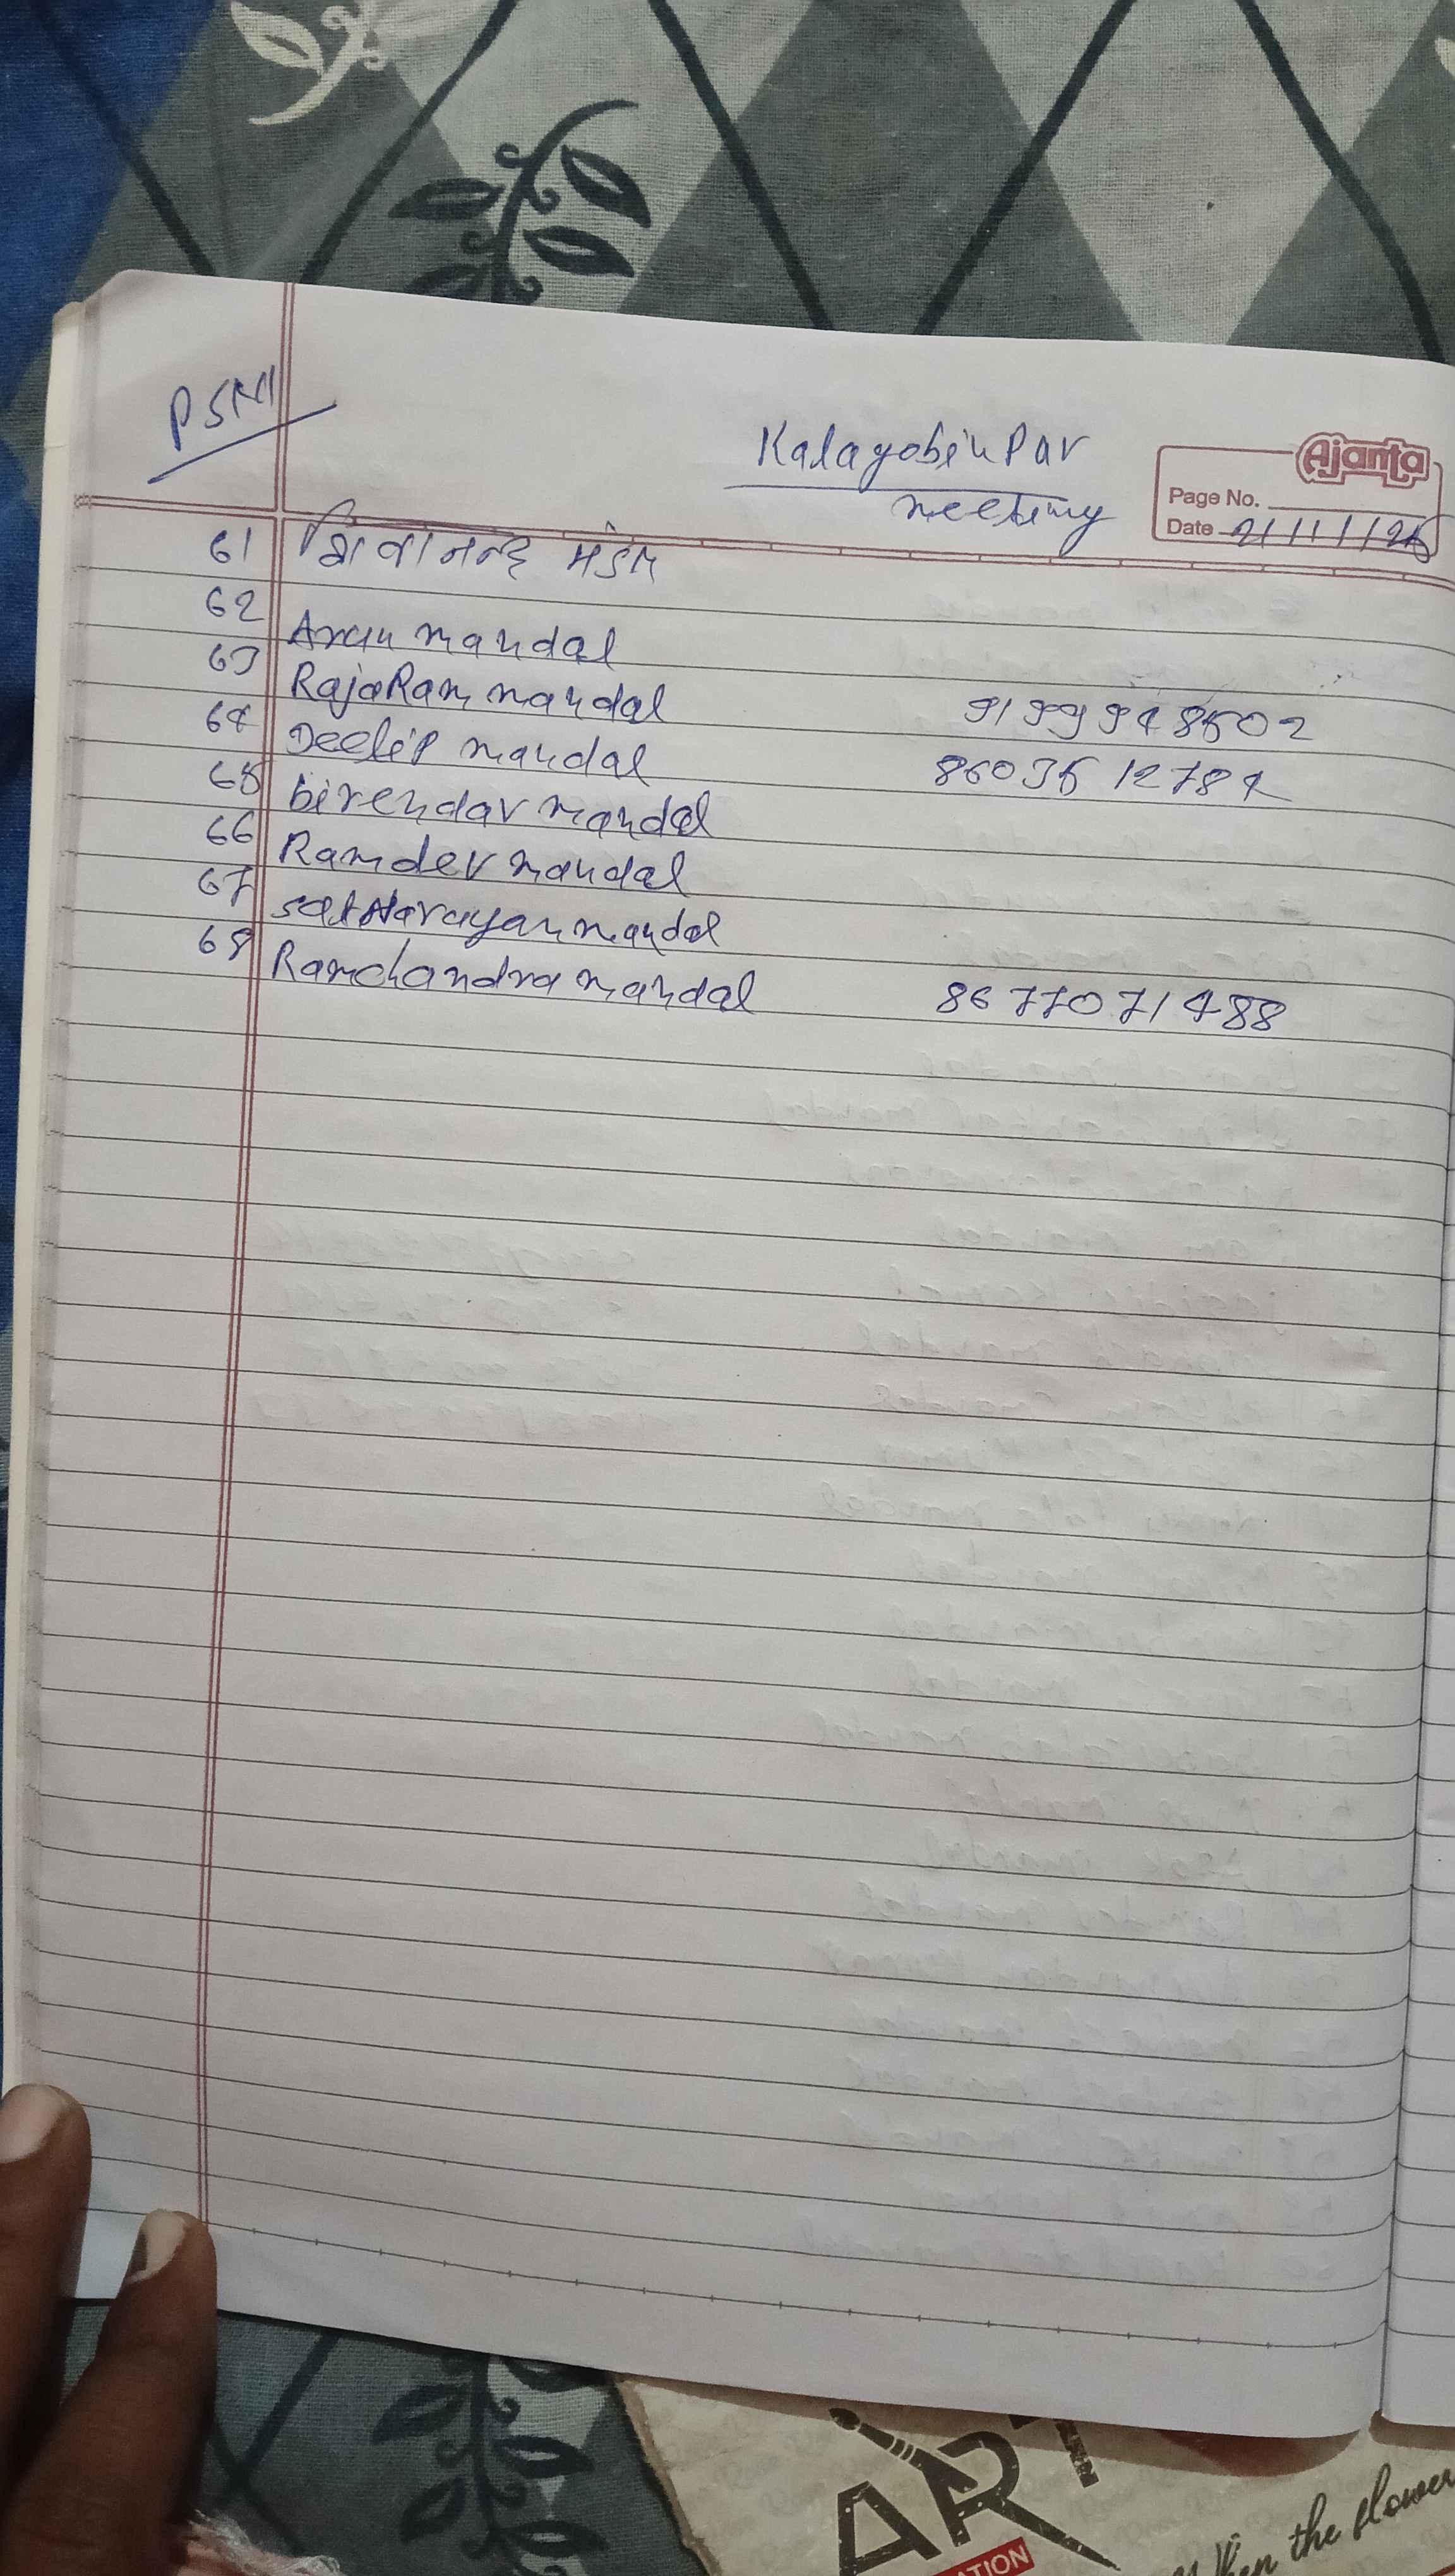 PSM
Kalagobinpar
meeting
Ajanta
Page No.
Date 21/11/25
61 शिवानन्द मंडल
62 Arun mandal
63 RajaRam mandal 9199948502
64 Deelip mandal 8603512784
65 birendar mandal
66 Ramdev mandal
67 satNarayan mandal
68 Ramchandra mandal 8677071488
ART
when the flower